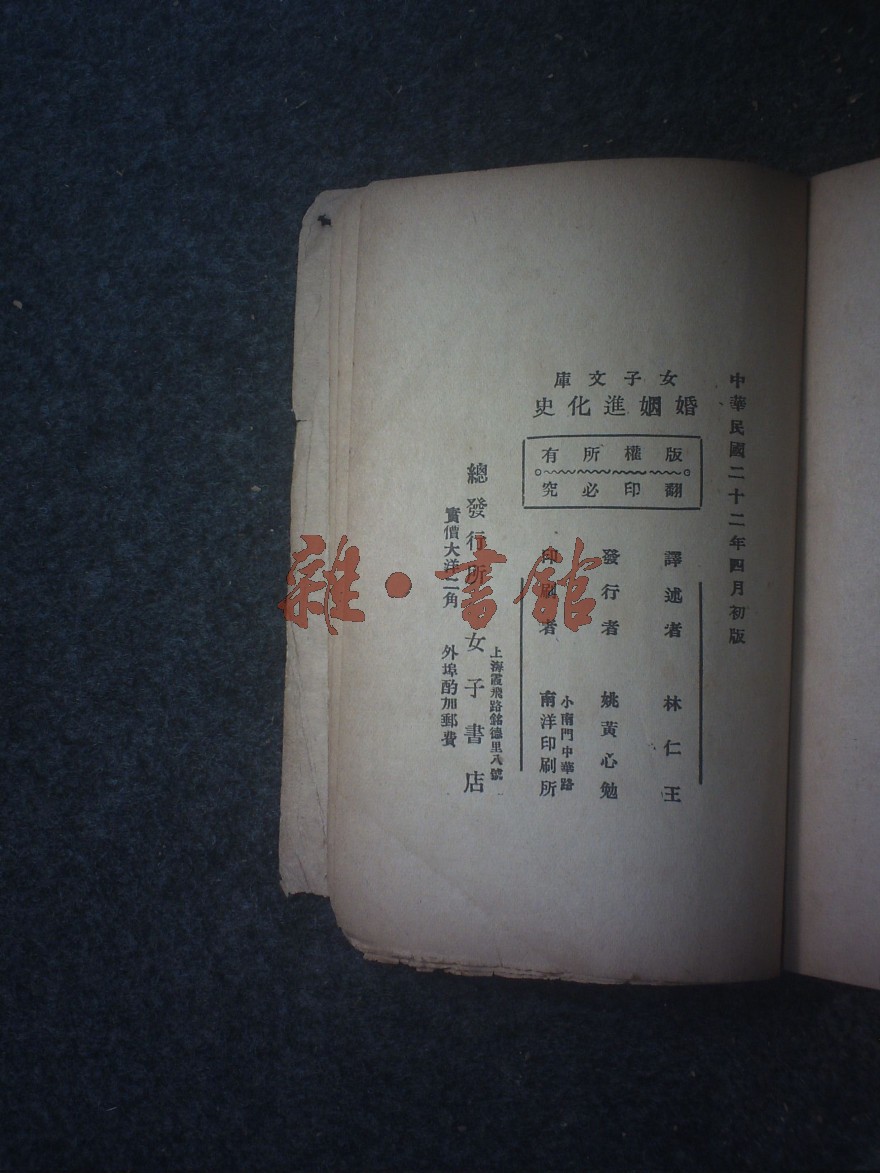 中華民國二十二年四月初版
女子文庫
婚姻進化史
版權所有
翻印必究
譯述者 林仁王
發行者 姚黃心勉
印刷者 南洋印刷所
小南門中華路
總發行所 女子書店
上海霞飛路銘德里八號
實價大洋二角 外埠酌加郵費
雜·書館